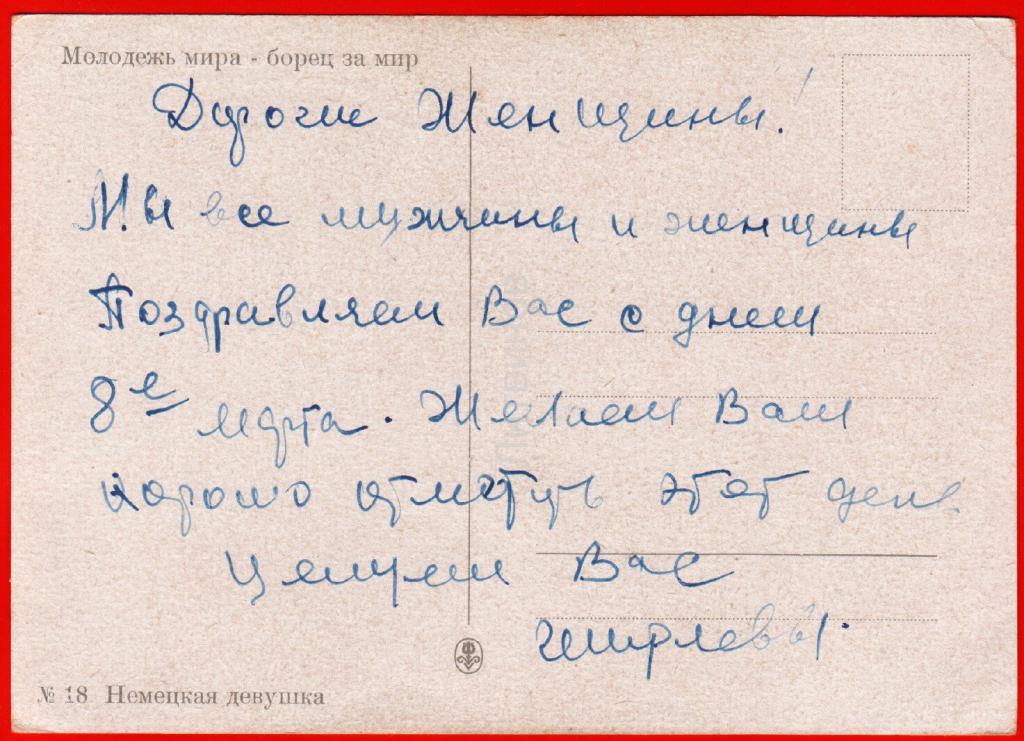 Молодежь мира - борец за мир
Дорогие Женщины!
Мы все мужчины и женщины
Поздравляем Вас с днем
8е марта. Желаем Вам
хорошо отметить этот день.
Целуем Вас
№ 18 Немецкая девушка